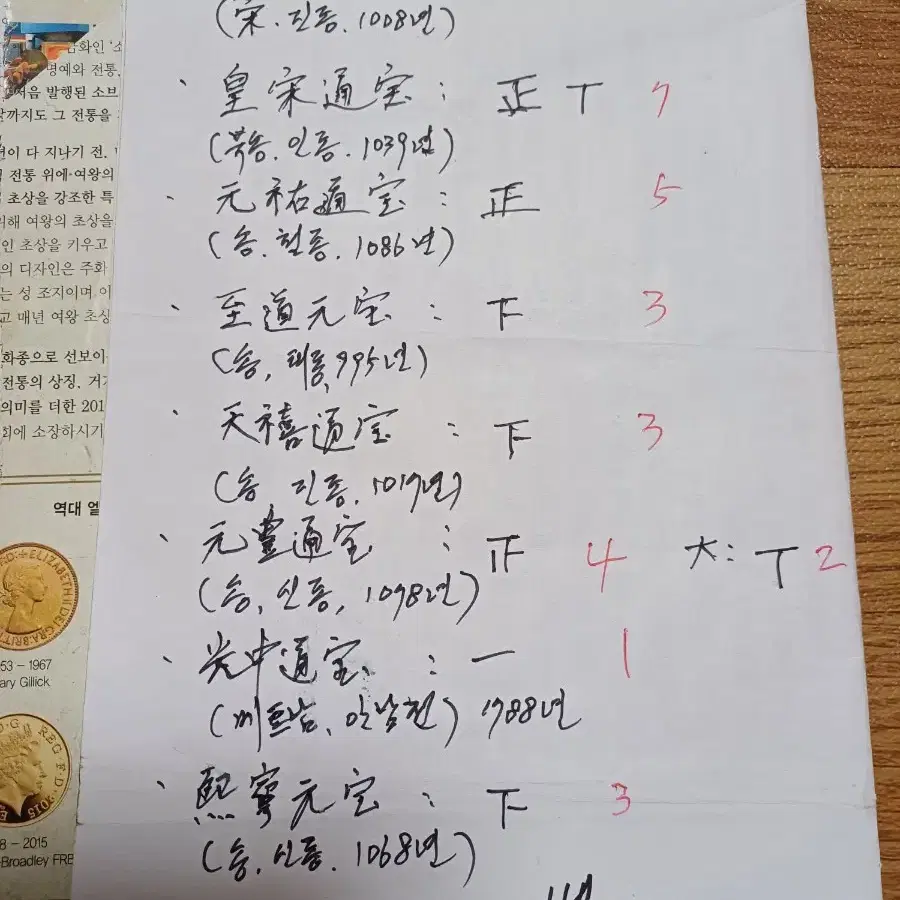 (宋. 진종. 1008년)
· 皇宋通宝 : 正 丅 7
(북송. 인종. 1039년)
· 元祐通宝 : 正 5
(송. 철종. 1086년)
· 至道元宝 : 下 3
(송, 태종, 995년)
· 天禧通宝 : 下 3
(송, 진종, 1017년)
· 元豊通宝 : 正 4 大: 丅 2
(송, 신종, 1078년)
· 光中通宝 : 一 1
(베트남, 안남전) 1788년
· 熙寧元宝 : 下 3
(송, 신종. 1068년)
금화인 '소
명예와 전통,
처음 발행된 소브
날까지도 그 전통을
년이 다 지나기 전,
전통 위에 여왕의
초상을 강조한 특
위해 여왕의 초상을
인 초상을 키우고
의 디자인은 주화
는 성 조지이며 이
고 매년 여왕 초상
화종으로 선보이
전통의 상징, 거
의미를 더한 201
회에 소장하시기
역대 엘
ELIZABETH II DEI GRA
53 – 1967
ary Gillick
REG F D 2015
8 – 2015
-Broadley FRB